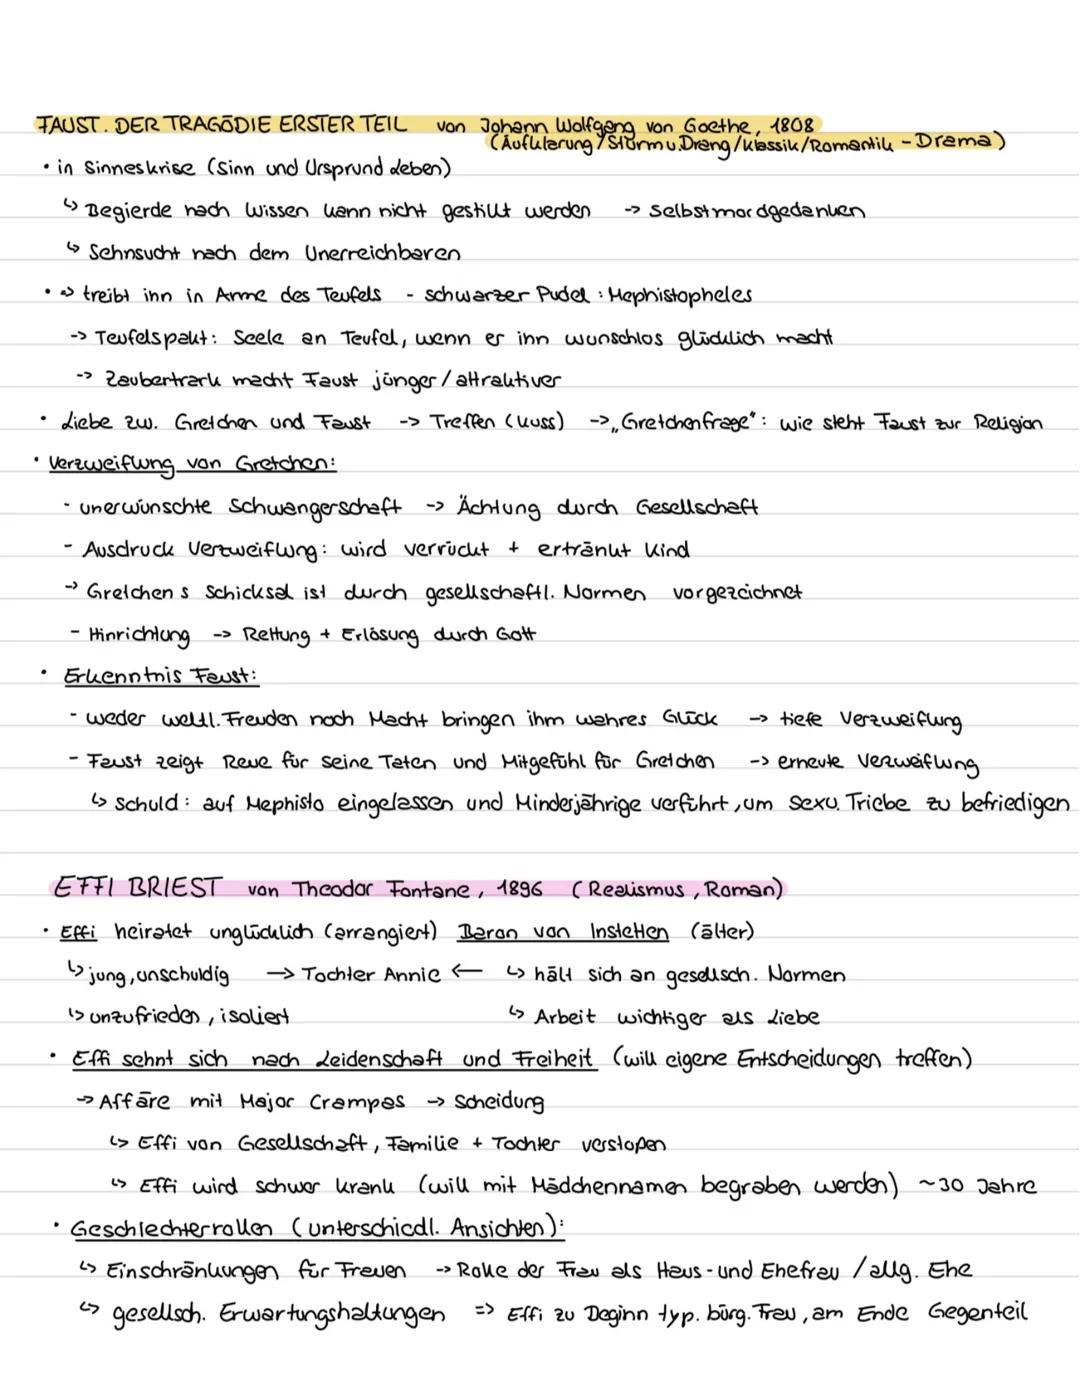 FAUST. DER TRAGÖDIE ERSTER TEIL von Johann Wolfgang von Goethe, 1808
(Aufklärung/Sturm u. Drang/Klassik/Romantik - Drama)
• in Sinneskrise (Sinn und Ursprund Leben)
↳ Begierde nach Wissen kann nicht gestillt werden -> Selbstmordgedanken
↳ Sehnsucht nach dem Unerreichbaren
• => treibt ihn in Arme des Teufels - schwarzer Pudel : Mephistopheles
-> Teufelspakt: Seele an Teufel, wenn er ihn wunschlos glücklich macht
-> Zaubertrank macht Faust jünger/attraktiver
• Liebe zw. Gretchen und Faust -> Treffen (Kuss) -> „Gretchenfrage“: wie steht Faust zur Religion
• Verzweiflung von Gretchen:
- unerwünschte Schwangerschaft -> Ächtung durch Gesellschaft
- Ausdruck Verzweiflung: wird verrückt + ertränkt Kind
-> Gretchens Schicksal ist durch gesellschaftl. Normen vorgezeichnet
- Hinrichtung -> Rettung + Erlösung durch Gott
• Erkenntnis Faust:
- weder weltl. Freuden noch Macht bringen ihm wahres Glück -> tiefe Verzweiflung
- Faust zeigt Reue für seine Taten und Mitgefühl für Gretchen -> erneute Verzweiflung
↳ Schuld : auf Mephisto eingelassen und Minderjährige verführt, um sexu. Triebe zu befriedigen
EFFI BRIEST von Theodor Fontane, 1896 (Realismus, Roman)
• Effi heiratet unglücklich (arrangiert) Baron von Instetten (älter)
↳ jung, unschuldig -> Tochter Annie <- ↳ hält sich an gesellsch. Normen
↳ unzufrieden, isoliert ↳ Arbeit wichtiger als Liebe
• Effi sehnt sich nach Leidenschaft und Freiheit (will eigene Entscheidungen treffen)
-> Affäre mit Major Crampas -> Scheidung
↳ Effi von Gesellschaft, Familie + Tochter verstoßen
↳ Effi wird schwer krank (will mit Mädchennamen begraben werden) ~30 Jahre
• Geschlechterrollen (unterschiedl. Ansichten):
↳ Einschränkungen für Frauen -> Rolle der Frau als Haus- und Ehefrau / allg. Ehe
↳ gesellsch. Erwartungshaltungen => Effi zu Beginn typ. bürg. Frau, am Ende Gegenteil